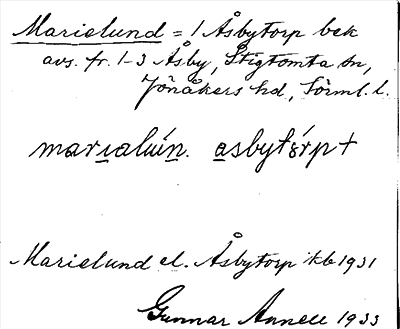 Marielund = 1 Åsbytorp bek
avs. fr. 1-3 Åsby, Stigtomta sn,
Jönåkers hd, Sörml. l.
marialún. asbytórp +
Marielund el. Åsbytorp jkb 1931
Gunnar Annell 1933